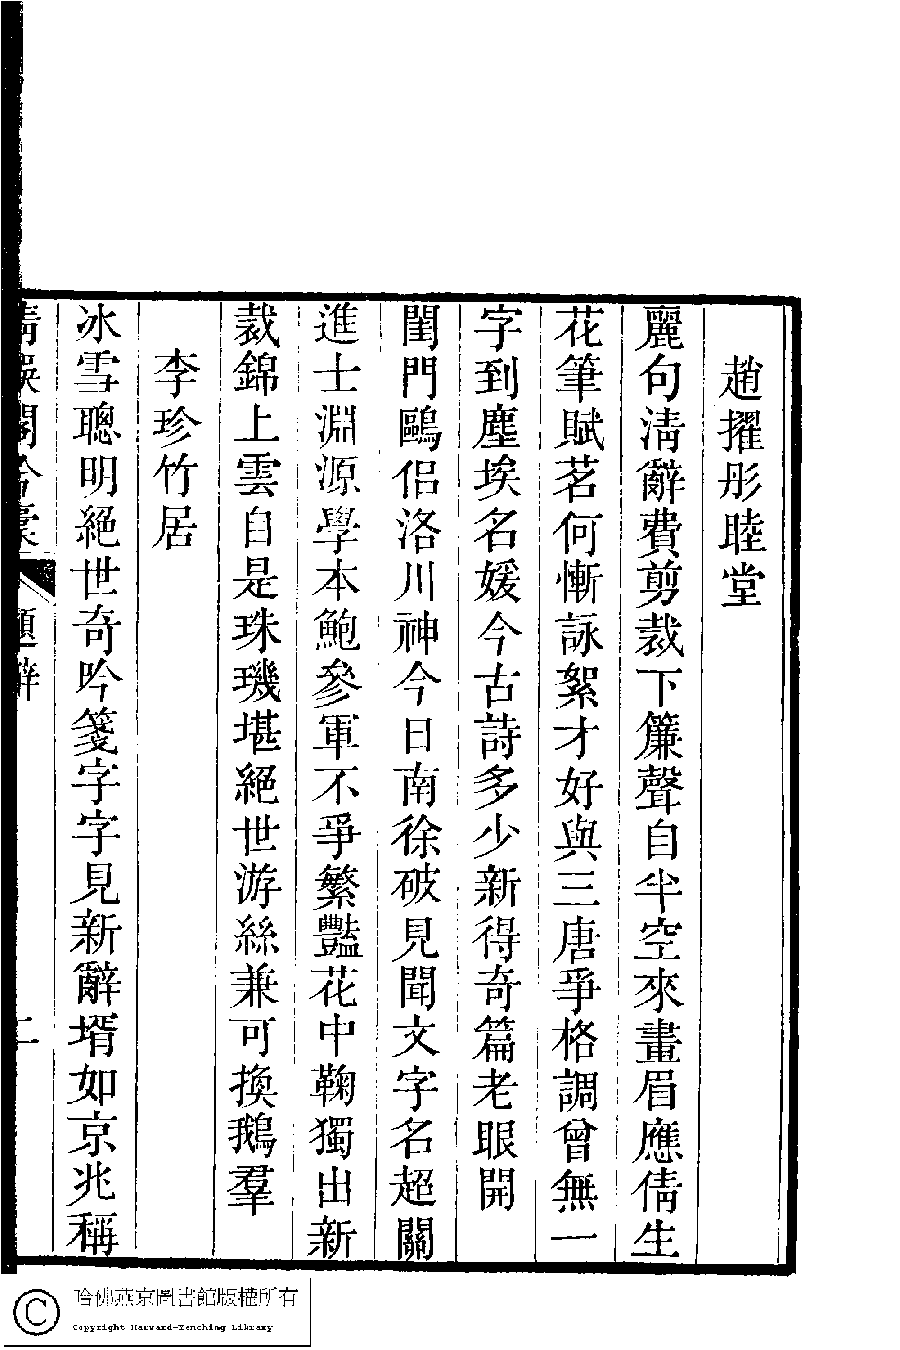 趙擢彤睦堂
麗句清辭費剪裁下簾聲自半空來畫眉應倩生
花筆賦茗何慚詠絮才好與三唐爭格調曾無一
字到塵埃名媛今古詩多少新得奇篇老眼開
閨門鷗侶洛川神今日南徐破見聞文字名超關
進士淵源學本鮑參軍不爭繁豔花中鞠獨出新
裁錦上雲自是珠璣堪絕世游絲兼可換鵝羣
李珍竹居
冰雪聰明絕世奇吟箋字字見新辭壻如京兆稱
題辭
二
哈佛燕京圖書館版權所有
Copyright Harvard-Yenching Library